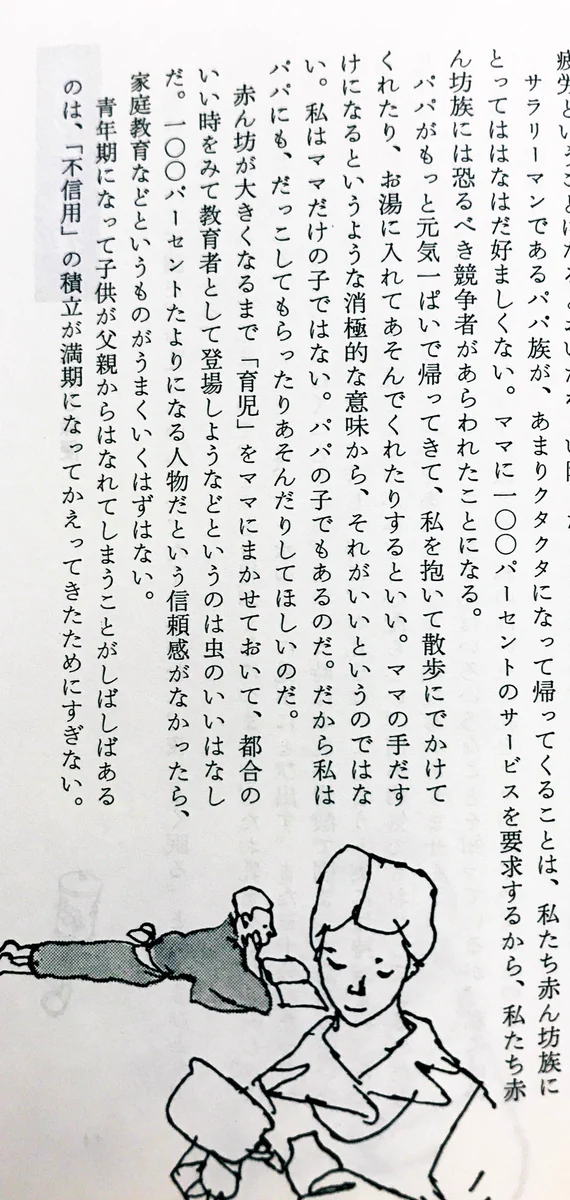 サラリーマンであるパパ族が、あまりクタクタになって帰ってくることは、私たち赤ん坊族に
とってははなはだ好ましくない。ママに一〇〇パーセントのサービスを要求するから、私たち赤
ん坊族には恐るべき競争者があらわれたことになる。
パパがもっと元気一ぱいで帰ってきて、私を抱いて散歩にでかけて
くれたり、お湯に入れてあそんでくれたりするといい。ママの手だす
けになるというような消極的な意味から、それがいいというのではな
い。私はママだけの子ではない。パパの子でもあるのだ。だから私は
パパにも、だっこしてもらったりあそんだりしてほしいのだ。
赤ん坊が大きくなるまで「育児」をママにまかせておいて、都合の
いい時をみて教育者として登場しようなどというのは虫のいいはなし
だ。一〇〇パーセントたよりになる人物だという信頼感がなかったら、
家庭教育などというものがうまくいくはずはない。
青年期になって子供が父親からはなれてしまうことがしばしばある
のは、「不信用」の積立が満期になってかえってきたためにすぎない。